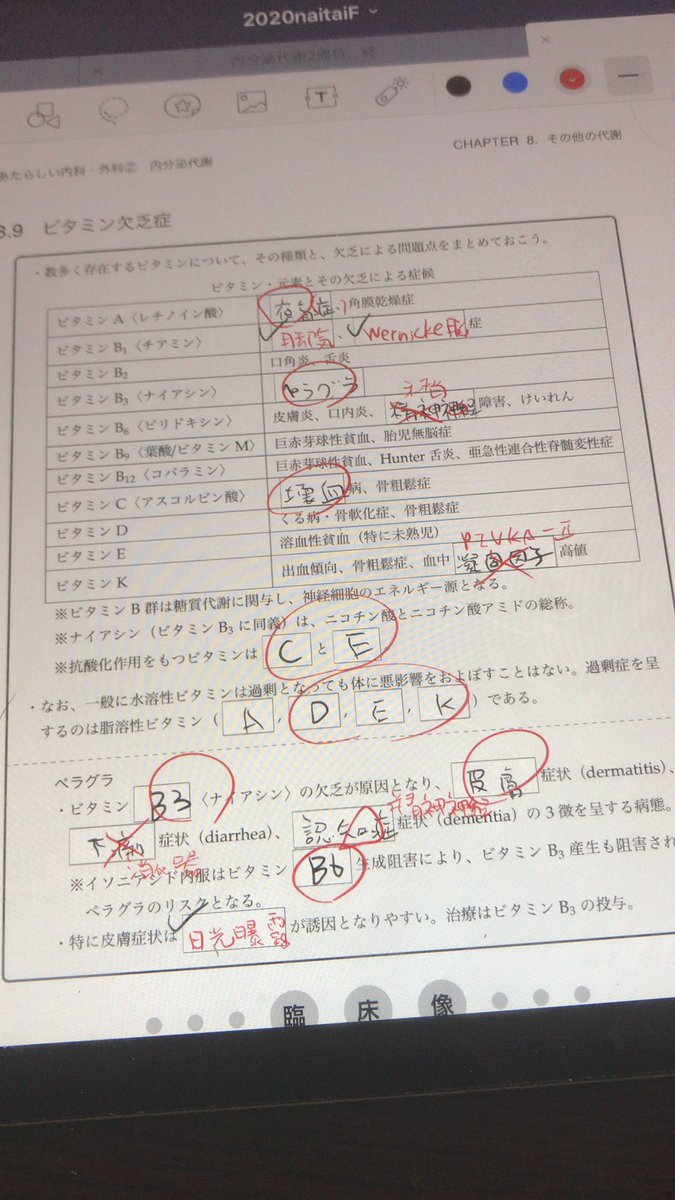 2020naitaiF
T
あたらしい内科・外科② 内分泌代謝
CHAPTER 8. その他の代謝
8.9 ビタミン欠乏症
・数多く存在するビタミンについて、その種類と、欠乏による問題点をまとめておこう。
ビタミン・元素とその欠乏による症候
ビタミン A〈レチノイン酸〉 夜盲症、角膜乾燥症
ビタミン B1〈チアミン〉 脚気、Wernicke脳症
ビタミン B2 口角炎、舌炎
ビタミン B3〈ナイアシン〉 ペラグラ
末梢
ビタミン B6〈ピリドキシン〉 皮膚炎、口内炎、精神神経障害、けいれん
ビタミン B9〈葉酸/ビタミン M〉 巨赤芽球性貧血、胎児無脳症
ビタミン B12〈コバラミン〉 巨赤芽球性貧血、Hunter 舌炎、亜急性連合性脊髄変性症
ビタミン C〈アスコルビン酸〉 壊血病、骨粗鬆症
ビタミン D くる病・骨軟化症、骨粗鬆症
ビタミン E 溶血性貧血（特に未熟児）
PIVKA-Ⅱ
ビタミン K 出血傾向、骨粗鬆症、血中 凝固因子 高値
※ビタミン B 群は糖質代謝に関与し、神経細胞のエネルギー源となる。
※ナイアシン（ビタミン B3 に同義）は、ニコチン酸とニコチン酸アミドの総称。
※抗酸化作用をもつビタミンは C と E
・なお、一般に水溶性ビタミンは過剰となっても体に悪影響をおよぼすことはない。過剰症を呈
するのは脂溶性ビタミン（ A , D , E , K ）である。
ペラグラ
・ビタミン B3〈ナイアシン〉の欠乏が原因となり、皮膚 症状（dermatitis）、
精神神経
下痢 症状（diarrhea）、認知症 症状（dementia）の 3 徴を呈する病態。
消化器
※イソニアシド内服はビタミン B6 生成阻害により、ビタミン B3 産生も阻害され
ペラグラのリスクとなる。
・特に皮膚症状は 日光曝露 が誘因となりやすい。治療はビタミン B3 の投与。
臨床像